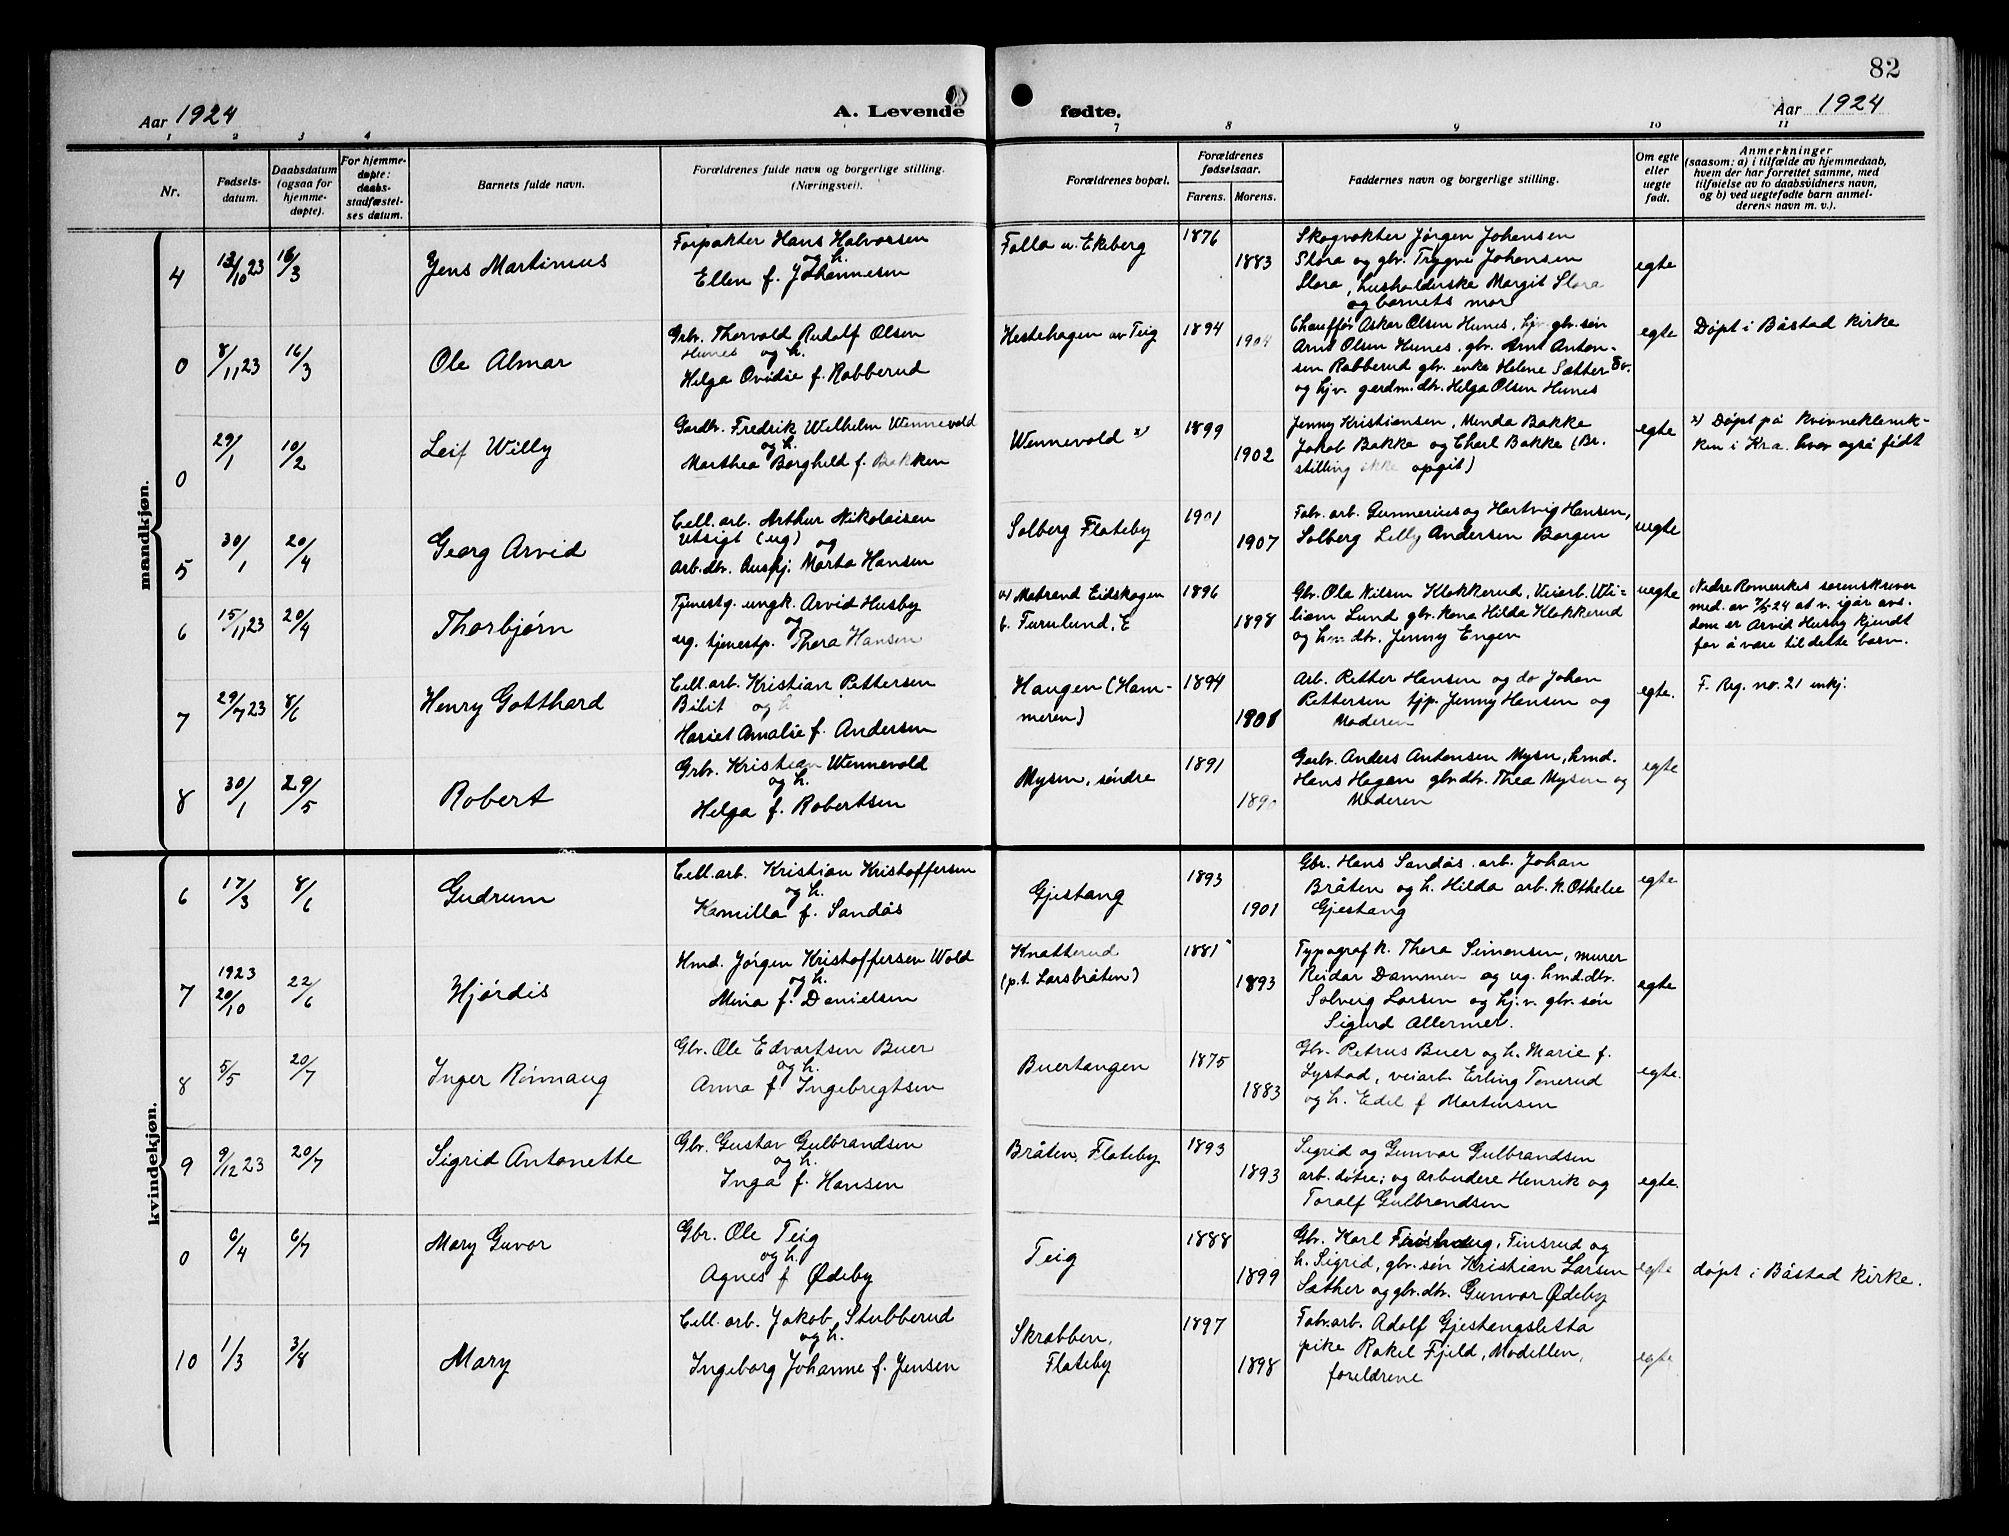 82
Aar 1924
A. Levende fødte.
Aar 1924
1 2 3 4 7 8 9 10 11
Nr.
Fødsels-
datum.
Daabsdatum
(ogsaa for
hjemme-
døpte).
For hjemme-
døpte:
daabs-
stadfæstel-
ses datum.
Barnets fulde navn.
Forældrenes fulde navn og borgerlige stilling.
(Næringsvei).
Forældrenes bopæl.
Forældrenes
fødselsaar.
Farens. Morens.
Faddernes navn og borgerlige stilling.
Om egte
eller
uegte
født.
Anmerkninger
(saasom: a) i tilfælde av hjemmedaab,
hvem der har forrettet samme, med
tilføielse av to daabsvidners navn,
og b) ved uegtefødte barn anmel-
derens navn m. v.).
mandkjøn.
4
13/10 23
16/3
Jens Martinius
Forpakter Hans Halvorsen
og h.
Ellen f. Johannesen
Folla u. Ekeberg
1876
1883
Skogvokter Jørgen Johansen
Slora og gbr. Trygve Johansen
Slora, husholderske Margit Slora
og barnets mor
egte
0
8/11 23
16/3
Ole Almar
Grbr. Thorvald Rudolf Olsen
Hunes og h.
Helga Ovidie f. Rabberud
Hestehagen av Teig
1894
1904
Chauffør Askar Olsen Hunes, hjv. gbr. søn
Arnt Olsen Hunes, gbr. Arnt Anton-
sen Rabberud gbr. enke Helene Sætter Øv.
og hjv. gerdm. dtr. Helga Olsen Hunes
egte
Døpt i Båstad kirke
0
29/1
10/2
Leif Willy
Gardbr. Fredrik Wilhelm Wennevold
og h.
Marthea Borghild f. Bakken
Wennevold x)
1899
1902
Jenny Kristiansen, Menda Bakke
Jakob Bakke og Charl Bakke (Br.
stilling ikke opgit)
egte
x) Døpt på kvinneklenik-
ken i Kra. hvor også født
5
30/1
20/4
Georg Arvid
Cell. arb. Arthur Nikolaisen
Utsigt (ug) og
Arb. dtr. Marta Hansen
Solberg Flateby
1901
1907
Fabr. arb. Gunnerius og Hartvig Hansen,
Solberg Lelly Andersen Borgen
uegte
6
15/11 23
20/4
Thorbjørn
Tjenestg. ungk. Arvid Husby
og
ug. tjenestp. Thora Hansen
a) Matrand Eidskogen
b. Furulund, E
1896
1898
Gbr. Ola Nilsen Klokkerud, Veiarb. Wil=
liam Lund gbr. kona Hilda Klokkerud
og hm. dtr. Jenny Engen
uegte
Nedre Romerikes sorenskriver
med. av 7/5 24 at v. igår avs.
dom er Arvid Husby kjendt
for å være til dette barn.
7
29/7 23
8/6
Henry Gotthard
Cell. arb. Kristian Pettersen
Bilit og h
Hariet Amalie f. Andersen
Haugen (Ham-
meren)
1894
1901
Arb. Petter Hansen og do Johan
Pettersen tjp. Jenny Hansen og
Moderen
egte.
F. Reg. no. 21 inkj.
8
30/1
29/5
Robert
Grbr. Kristian Wennevold
og h.
Helga f. Robertsen
Mysen, søndre
1891
Garbr. Anders Antonsen Mysen, hmd.
Hans Hagen gbr. dtr. Thea Mysen og
Moderen
egte
kvindekjøn.
6
17/3
8/6
Gudrum
Cell. arb. Kristian Kristoffersen
og h.
Kamilla f. Sandås
Gjestang
1893
1901
Gbr. Hans Sandås. arb. Johan
Bråten og h. Hilda arb. k. Othelie
Gjestang
egte
7
1923
20/10
22/6
Hjørdis
Hmd. Jørgen Kristoffersen Wold
og h.
Mina f. Danielsen
Knatterud
(p.t. Larsbråten)
1881
1893
Typograf k. Thora Simonsen, murer
Reidar Dammen og ug. hmd. dtr.
Solverg Larsen og hj. v. gbr. søn
Sigurd Allermer.
egte
8
5/5
20/7
Inger Rønnaug
Gbr. Ole Edvartsen Buer
og h.
Anna f Ingebrigtsen
Buertangen
1875
1883
Gbr. Petrus Buer og h. Marie f.
Lystad, veiarb. Erling Tonerud
og h. Edel f Martinsen
egte.
9
9/12 23
20/7
Sigrid Antonette
Gbr. Gustav Gulbrandsen
og h.
Inga f. Hansen
Bråten, Flateby
1893
1893
Sigrid og Gunvor Gulbrandsen
arb. døtre; og Arbeidere Henrik og
Toralf Gulbrandsen
egte.
0
6/4
6/7
Mary Guvor
Gbr. Ole Teig
og h.
Agnes f Ødeby
Teig
1888
1899
Gbr. Karl Finsrud og
h. Sigrid, gbr. søn Kristian Larsen
Sæther og gbr. dtr. Gunvor Ødeby
egte
døpt i Båstad kirke.
10
1/3
3/8
Mary
Cell. arb. Jakob Stubberud
og h.
Ingeborg Johanne f. Jensen
Skrabben,
Flateby
1897
1898
Fabr. arb. Adolf Gjestangsletta
pike Rakel Fjeld, Modellen,
foreldrene
egte